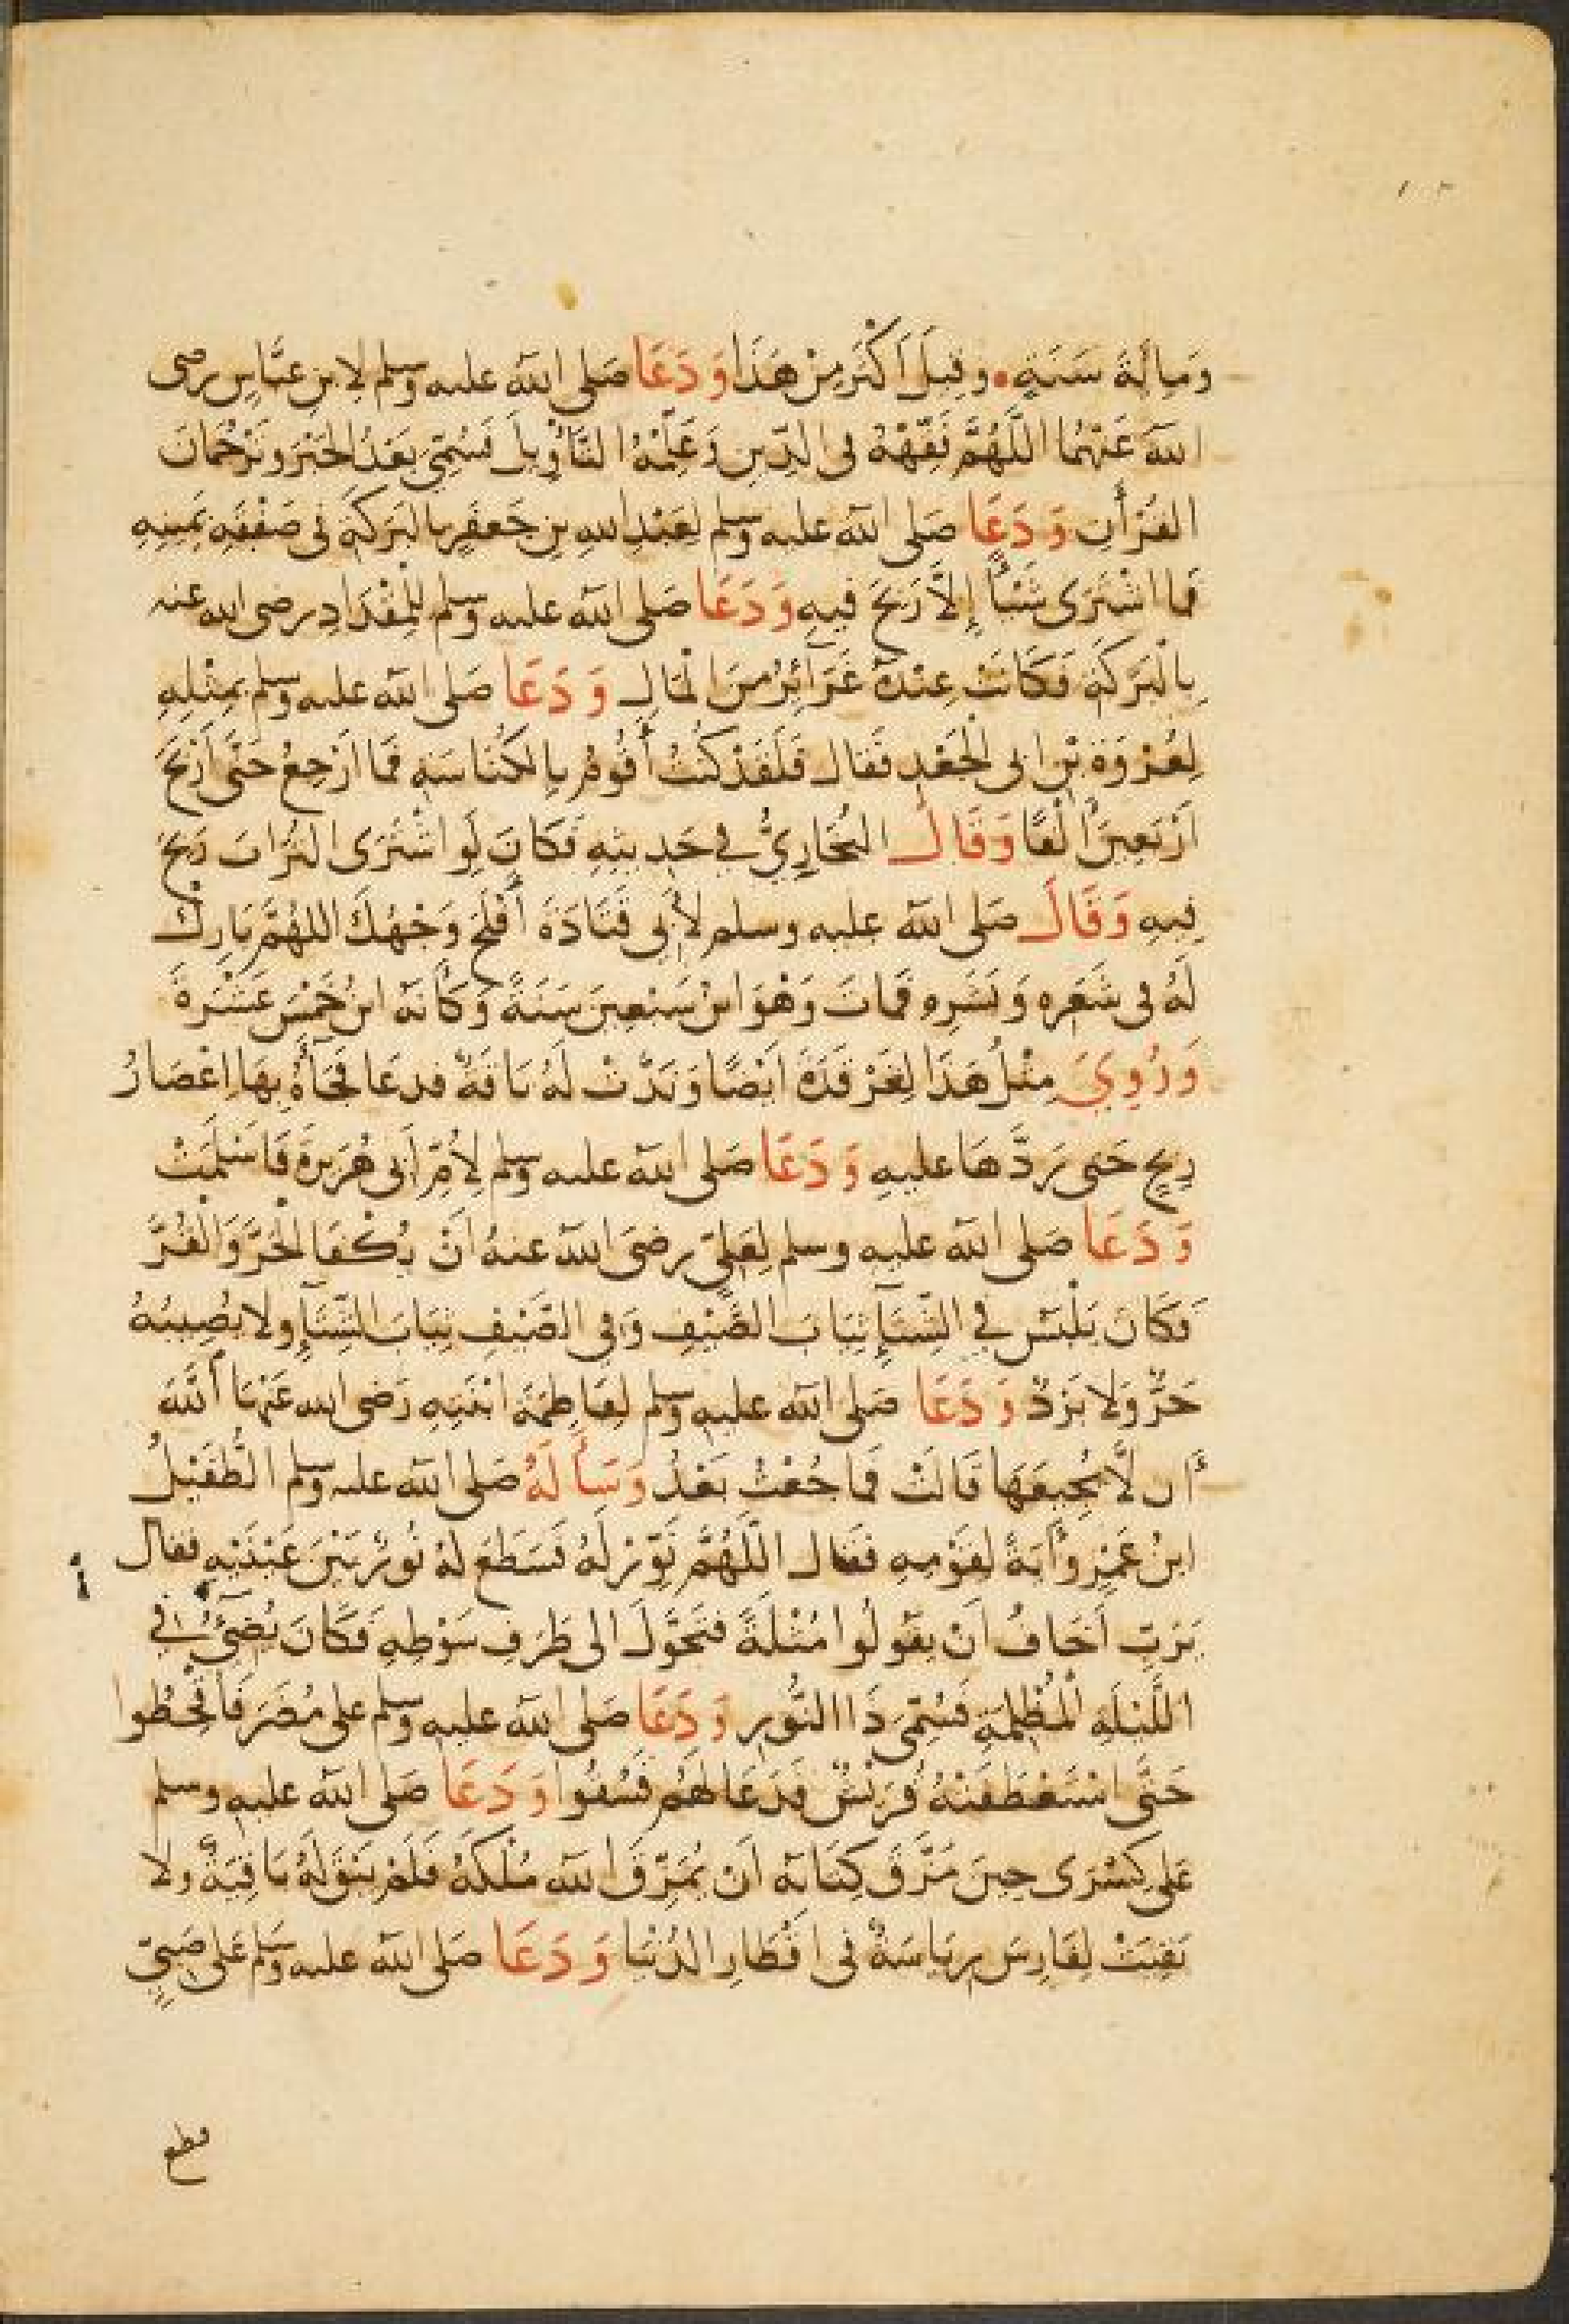 ١٠٣
وَمِائَةَ سَنَةٍ وقيلَ اَكْثَرَ مِنْ هَذَا وَدَعَا صَلى الله عليه وسلم لابنِ عبَّاسٍ رضى
الله عَنْهُمَا اللَّهُمَّ فَقِّهْهُ فى الدِّينِ وَعَلِّمْهُ التَّأْوِيلَ فَسُمِّيَ بَعْدُ الحَبْرَ وتَرْجُمَانَ
القُرْأَنِ وَدَعَا صَلى الله عليه وسلم لِعَبْدِ اللهِ بنِ جَعفَرٍ بالبَرَكَةِ فى صَفْقَةِ يَمِينِهِ
فَمَا اشْتَرَى شَيْئًا إِلاَّ رَبِحَ فيهِ وَدَعَا صَلى الله عليه وسلم لِلْمِقْدَادِ رضى الله عنه
بِالْبَرَكَةِ فَكَانَتْ عِنْدَهُ غَرَآئِرُ مِنَ الْمَالِ وَدَعَا صَلى الله عليه وسلم بمِثْلِهِ
لِعُرْوَةَ بْنِ ابى الْجَعْدِ فَقَال فَلَقَدْ كُنْتُ أَقُومُ بِالكُنَاسَةِ فَمَا اَرْجِعُ حَتَّى اَرْبَحَ
اَرْبَعِينَ اَلْفًا وَقَالَ البُخَارِيُّ فِي حَدِيثِهِ فَكَانَ لَوِ اشْتَرَى التُّرَابَ رَبِحَ
فِيهِ وَقَالَ صَلى الله عليه وسلم لأَبى قَتَادَةَ أَفْلَحَ وَجْهُكَ اللهُمَّ بَارِكْ
لَهُ فى شَعَرِهِ وَبَشَرِهِ فَمَاتَ وَهْوَ ابنُ سَبْعِينَ سَنَةً وَكَأَنَّهُ ابنُ خَمْسَ عَشْرَةَ
وَرُوِيَ مِثْلُ هَذَا لِغَرْقَدَةَ اَيْضًا وَنَدَّتْ لَهُ نَاقَةٌ فدعَا فَجَاَءهُ بِهَا اِعْصَارُ
رِيحٍ حَتى رَدَّهَا عليهِ وَدَعَا صَلى الله عليه وسلم لِأُمِّ أَبى هُرَيرةَ فَاَسْلَمَتْ
وَدَعَا صَلى الله عليه وسلم لِعَلِيٍّ رضىَ الله عنهُ اَنْ يُكْفَا الْحَرَّ وَالْقُرَّ
فَكَانَ يَلْبَسُ في الشِّتَآءِ ثِيَابَ الصَّيْفِ وَفى الصَّيْفِ ثِيَابَ الشِّتَآءِ ولا يُصِيبُهُ
حَرٌّ وَلا بَرْدٌ وَدَعَا صَلى الله عليه وسلم لِفَاطِمَةَ ابْنَتِهِ رَضى الله عَنْهَا اَللهَ
أَن لَّا يُجِيعَهَا قَالَتْ فَمَا جُعْتُ بَعْدُ وَسَأَلَهُ صَلى الله عليه وسلم الطُّفَيْلُ
ابنُ عَمْرٍو أَيَةً لِقَوْمِهِ فقَال اللَّهُمَّ نَوِّرْ لَهُ فَسَطَعَ لَهُ نُورٌ بَيْنَ عَيْنَيْهِ فقال
يَرَبِّ أَخَافُ اَنْ يقَولُوا مُثْلَةً فتَحَوَّلَ الى طَرَفِ سَوْطِهِ فَكَانَ يُضِىُٔ فِي
اللَّيْلَةِ الْمُظْلِمَةِ فَسُمِّىَ ذَا النُّورِ وَدَعَا صَلى الله عليه وسلم على مُضَرَ فَأُقْحِطُوا
حَتَّى اسْتَعْطَفَتْهُ قُرَيْشٌ فَدَعَا لَهُمْ فَسُقُوا وَدَعَا صَلى الله عليهِ وسلم
عَلى كِسْرَى حِينَ مَزَّقَ كِتَابَهُ اَنْ يُمَزِّقَ الله مُلْكَهُ فَلَمْ يَبْقَ لَهُ بَاقِيَةٌ ولا
بَقِيَتْ لِفَارِسَ رِيَاسَةٌ فى اقْطَارِ الدُنْيَا وَدَعَا صَلى الله عليه وسَلم عَلى صَبِيٍّ
قطع